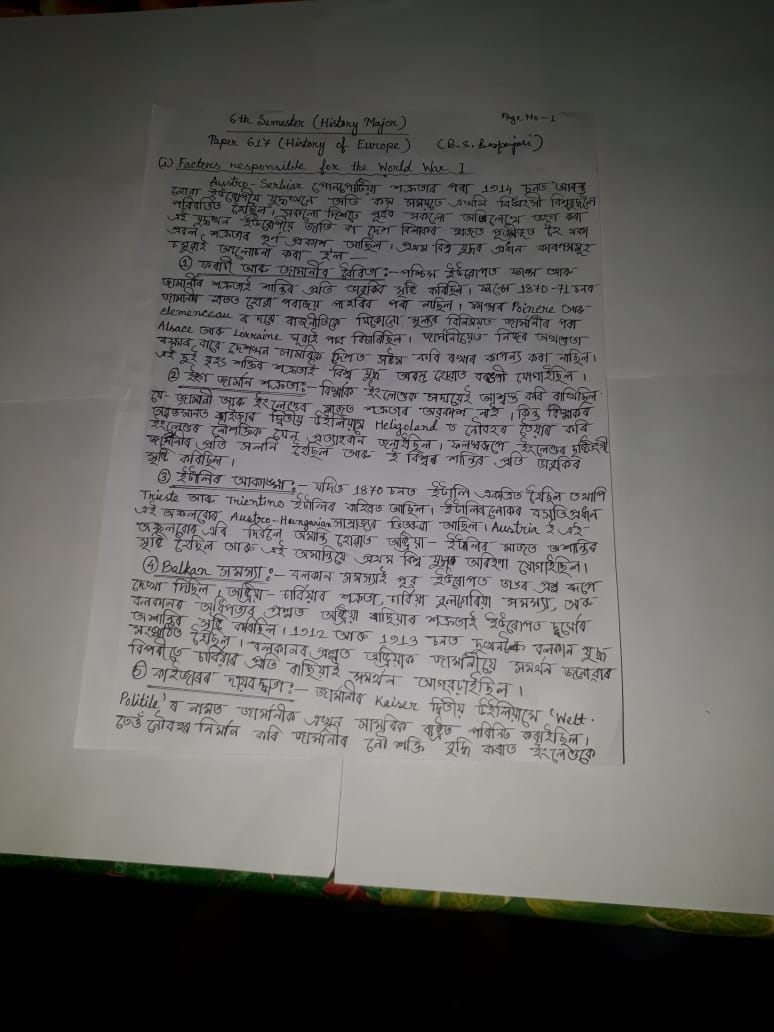 6th Semester (History Major) Page No-1
Paper 617 (History of Europe) (B.S.
(i) Factors responsible for the World War I
Austro-Serbiar গোলপোটীয়া শত্ৰুতাৰ পৰা 1914 চনত আৰম্ভ
হোৱা ইউৰোপীয় যুদ্ধখনে অতি কম সময়তে এখনি বিধ্বংসী বিশ্বযুদ্ধলৈ
পৰিবৰ্তিত হৈছিল। সকলো দিশতে পূৰ্বৰ সকলো
এই যুদ্ধখন ইউৰোপীয় জাতি বা দেশ বিলাকৰ মাজত পুঞ্জীভূত হৈ থকা
প্ৰবল শত্ৰুতাৰ পূৰ্ণ প্ৰকাশ আছিল। প্ৰথম বিশ্ব যুদ্ধৰ প্ৰধান কাৰণসমূহ
চমুৱাই আলোচনা কৰা হ'ল—
① ফৰাচী আৰু জাৰ্মানীৰ বৈৰিতা :- পশ্চিম ইউৰোপত ফ্ৰান্স আৰু
জাৰ্মানীৰ শত্ৰুতাই শান্তিৰ প্ৰতি ভাবুকিৰ সৃষ্টি কৰিছিল। ফ্ৰান্সে 1870-71 চনৰ
জাৰ্মানীৰ হাতত হোৱা পৰাজয় পাহৰিব পৰা নাছিল। ফ্ৰান্সৰ Poincre আৰু
clemenceau ৰ দৰে ৰাজনীতিকে যিকোনো মূল্যৰ বিনিময়ত জাৰ্মানীৰ পৰা
Alsace আৰু Lorraine ঘূৰাই পাব বিচাৰিছিল। জাৰ্মানীয়েও নিজৰ অখণ্ডতা
ৰক্ষাৰ বাবে দেশখন সামৰিক দিশত সক্ষম কৰি ৰখাৰ কাৰ্পণ্য কৰা নাছিল।
এই দুই বৃহৎ শক্তিৰ শত্ৰুতাই বিশ্ব যুদ্ধ আৰম্ভ হোৱাত বৰঙণী যোগাইছিল।
② ইঙ্গ জাৰ্মান শত্ৰুতা :- বিস্মাৰ্কে ইংলেণ্ডক সদায়েই আশ্বস্ত কৰি ৰাখিছিল
যে- জাৰ্মানী আৰু ইংলেণ্ডৰ মাজত শত্ৰুতাৰ অৱকাশ নাই। কিন্তু বিস্মাৰ্কৰ
অবৰ্তমানত কাইজাৰ দ্বিতীয় উইলিয়ামে Heligoland ত নৌবহৰ তৈয়াৰ কৰি
ইংলেণ্ডৰ নৌশক্তিক যেন প্ৰত্যাহ্বান জনাইছিল। ফলস্বৰূপে ইংলেণ্ডৰ দৃষ্টিভংগী
জাৰ্মানীৰ প্ৰতি সলনি হৈছিল আৰু ই বিশ্বৰ শান্তিৰ প্ৰতি ভাবুকিৰ
সৃষ্টি কৰিছিল।
③ ইটালিৰ আকাঙ্ক্ষা :- যদিও 1870 চনত ইটালি একত্ৰিত হৈছিল তথাপি
Trieste আৰু Trientino ইটালিৰ বাহিৰত আছিল। ইটালিৰলোকৰ বসতিপ্ৰধান
এই অঞ্চলবোৰ Austro-Hungarian সাম্ৰাজ্যৰ ভিতৰুৱা আছিল। Austria ই এই
অঞ্চলবোৰ এৰি দিবলৈ অমান্তি হোৱাত অষ্ট্ৰিয়া — ইটালিৰ মাজত অশান্তিৰ
সৃষ্টি হৈছিল আৰু এই অশান্তিয়ে প্ৰথম বিশ্ব যুদ্ধৰ অৰিহণা যোগাইছিল।
④ Balkan সমস্যা :- বলকান সমস্যাই পূব ইউৰোপত ডাঙৰ প্ৰশ্ন ৰূপে
দেখা দিছিল। অষ্ট্ৰিয়া — চাৰ্বিয়াৰ শত্ৰুতা, চাৰ্বিয়া বুলগেৰিয়া সমস্যা, আৰু
বলকানৰ আধিপত্যৰ প্ৰশ্নত অষ্ট্ৰিয়া ৰাছিয়াৰ শত্ৰুতাই ইউৰোপত দুৰ্ঘোৰ
অশান্তিৰ সৃষ্টি কৰিছিল। 1912 আৰু 1913 চনত দুখনকৈ বলকান যুদ্ধ
সংঘটিত হৈছিল। বলকানৰ প্ৰশ্নত অষ্ট্ৰিয়াক জাৰ্মানীয়ে সমৰ্থন জনোৱাৰ
বিপৰীতে চাৰ্বিয়াৰ প্ৰতি ৰাছিয়াই সমৰ্থন আগবঢ়াইছিল।
⑤ কাইজাৰৰ দায়বদ্ধতা :- জাৰ্মানীৰ Kaiser দ্বিতীয় উইলিয়ামে 'Welt.
Politile' ৰ নামত জাৰ্মানীক এখন সামৰিক ৰাষ্ট্ৰত পৰিণত কৰাইছিল।
তেওঁ নৌবহৰ নিৰ্মান কৰি জাৰ্মানীৰ নৌ শক্তি বৃদ্ধি কৰাত ইংলেণ্ডকে